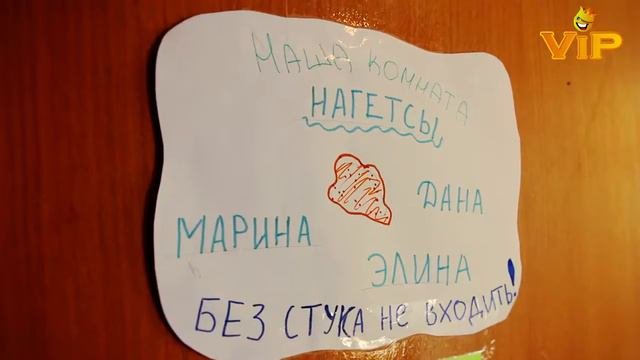 ViP
НАША КОМНАТА
НАГЕТСЫ
ДАНА
МАРИНА
ЭЛИНА
БЕЗ СТУКА НЕ ВХОДИТЬ!